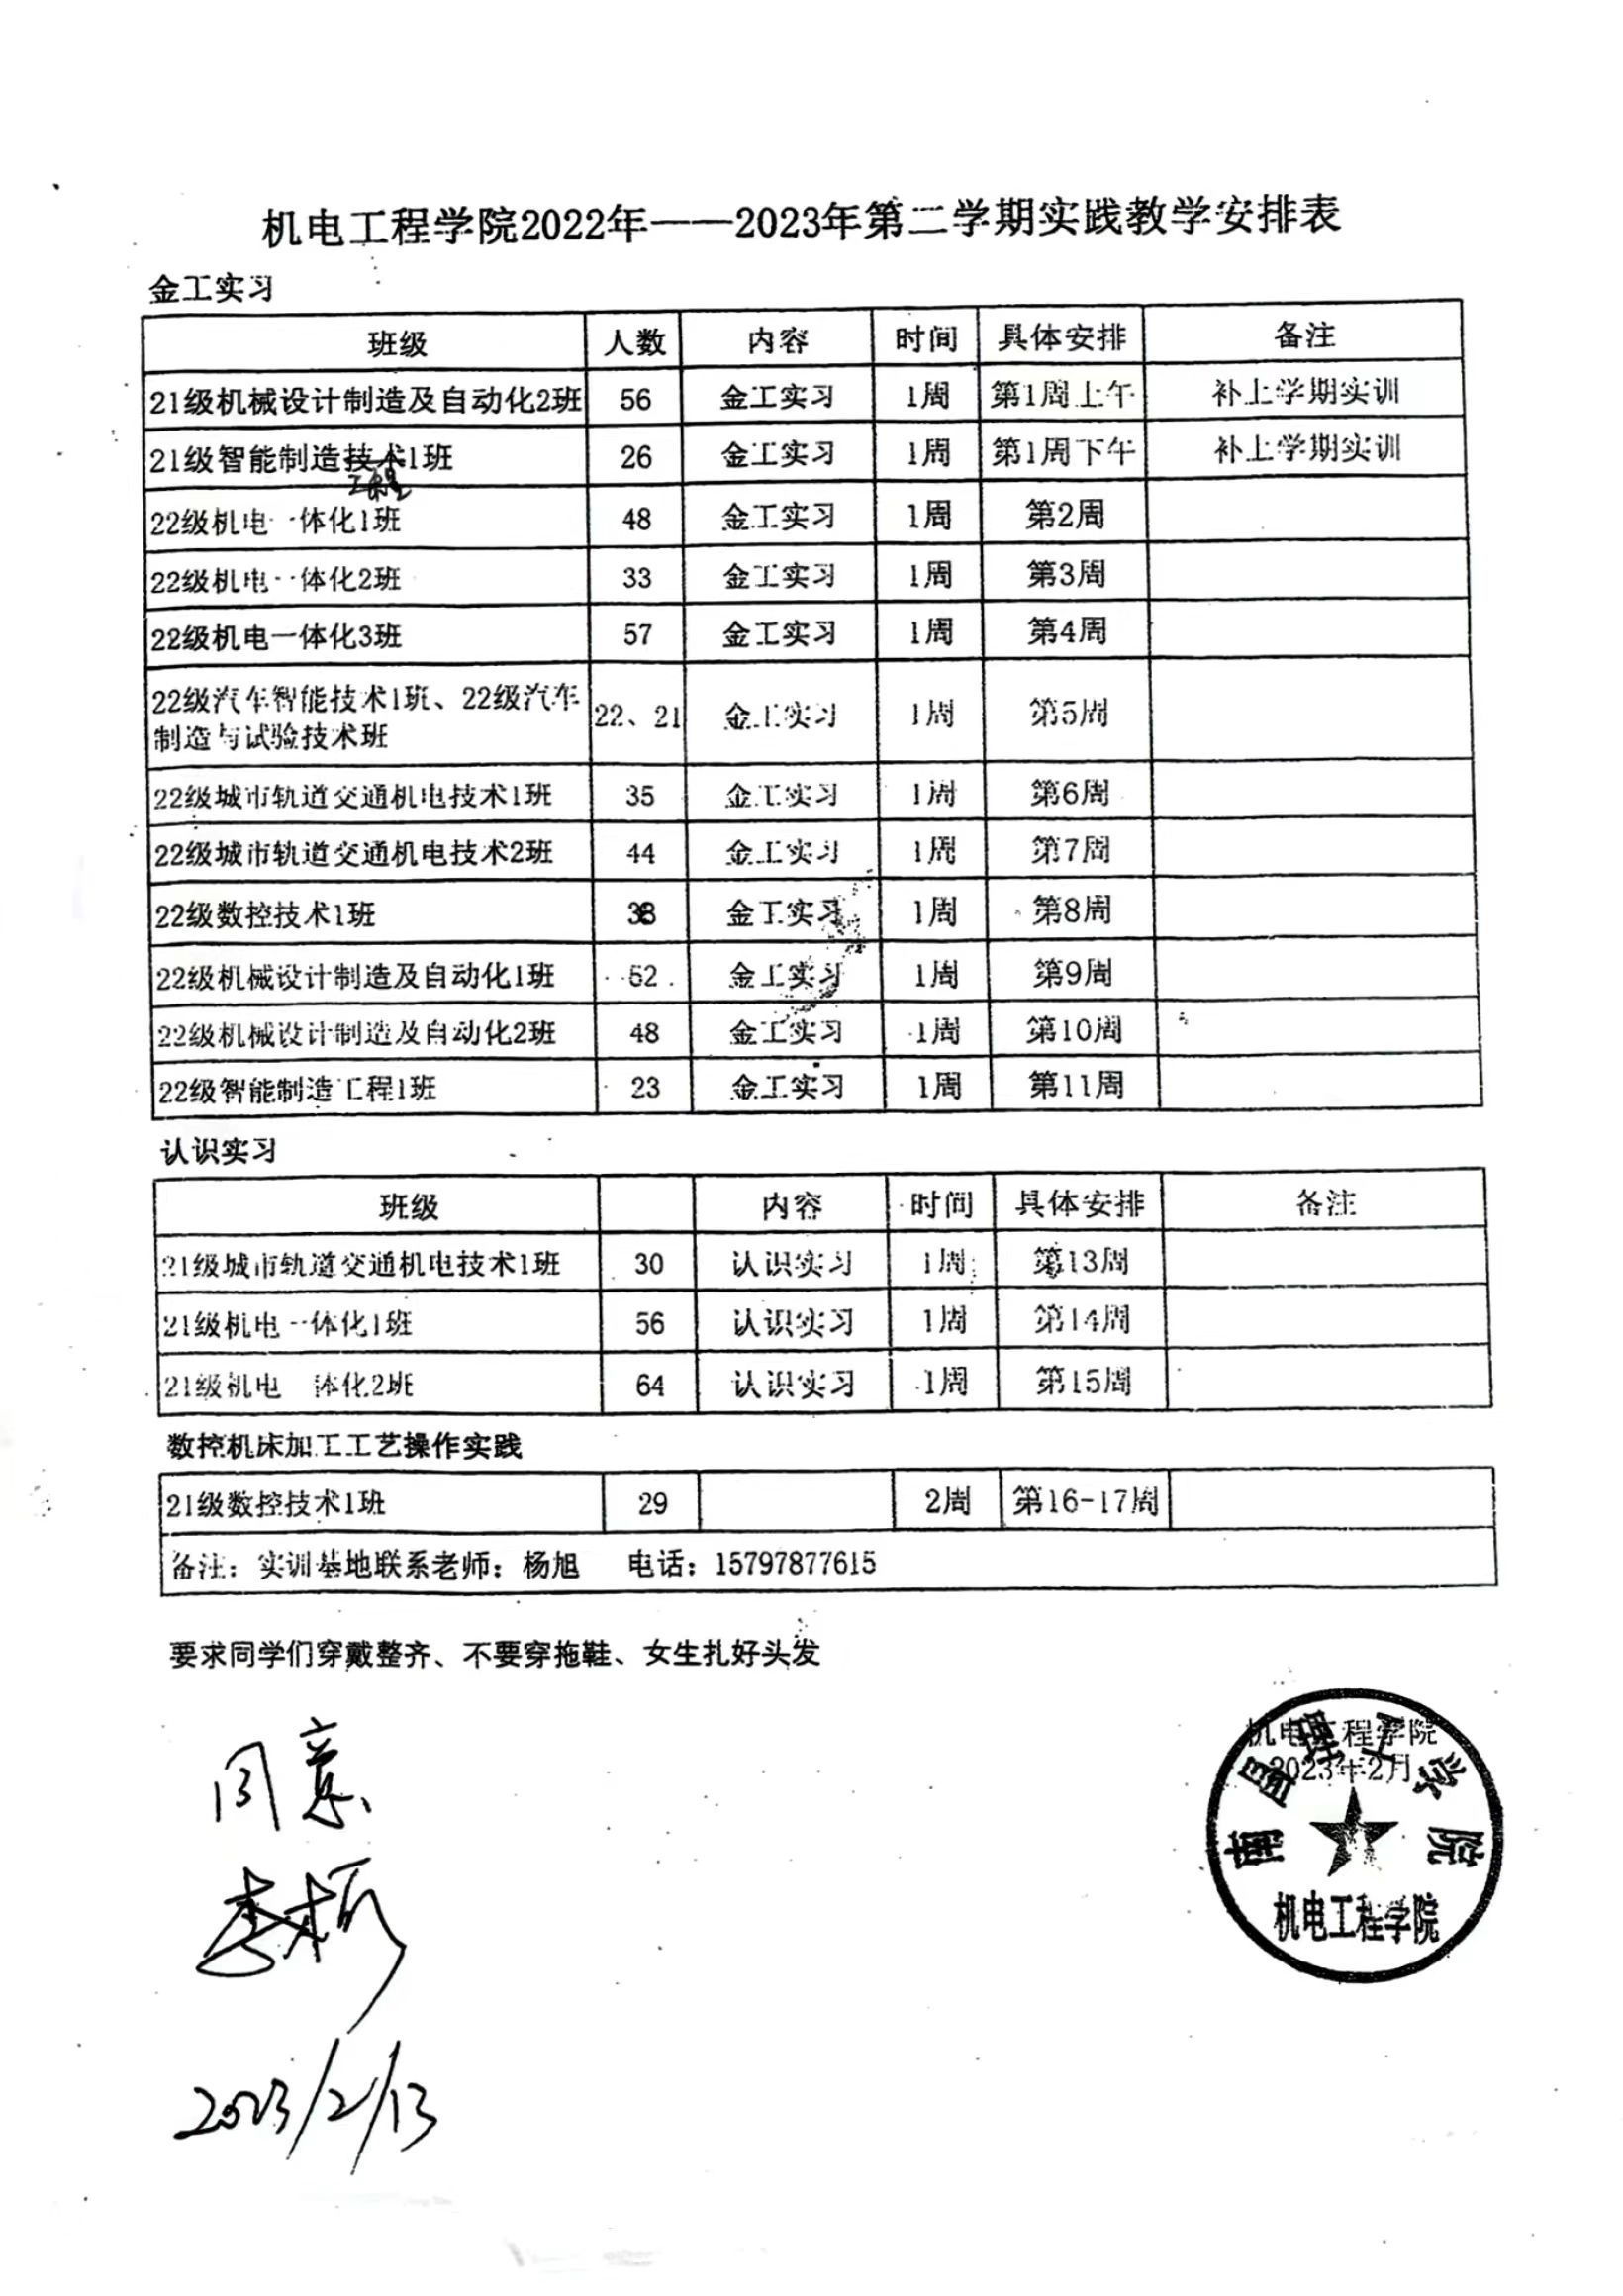 机电工程学院2022年——2023年第二学期实践教学安排表
金工实习
班级 人数 内容 时间 具体安排 备注
21级机械设计制造及自动化2班 56 金工实习 1周 第1周上午 补上学期实训
21级智能制造技术1班 26 金工实习 1周 第1周下午 补上学期实训
工程
22级机电一体化1班 48 金工实习 1周 第2周
22级机电一体化2班 33 金工实习 1周 第3周
22级机电一体化3班 57 金工实习 1周 第4周
22级汽车智能技术1班、22级汽车
制造与试验技术班 22、21 金工实习 1周 第5周
22级城市轨道交通机电技术1班 35 金工实习 1周 第6周
22级城市轨道交通机电技术2班 44 金工实习 1周 第7周
22级数控技术1班 金工实习 1周 第8周
22级机械设计制造及自动化1班 52 金工实习 1周 第9周
22级机械设计制造及自动化2班 48 金工实习 1周 第10周
22级智能制造工程1班 23 金工实习 1周 第11周
认识实习
班级 内容 时间 具体安排 备注
21级城市轨道交通机电技术1班 30 认识实习 1周 第13周
21级机电一体化1班 56 认识实习 1周 第14周
21级机电一体化2班 64 认识实习 1周 第15周
数控机床加工工艺操作实践
21级数控技术1班 29 2周 第16-17周
备注：实训基地联系老师：杨旭 电话：15797877615
要求同学们穿戴整齐、不要穿拖鞋、女生扎好头发
机电工程学院
2023年2月
南昌理工学院
机电工程学院
同意
2023/2/13